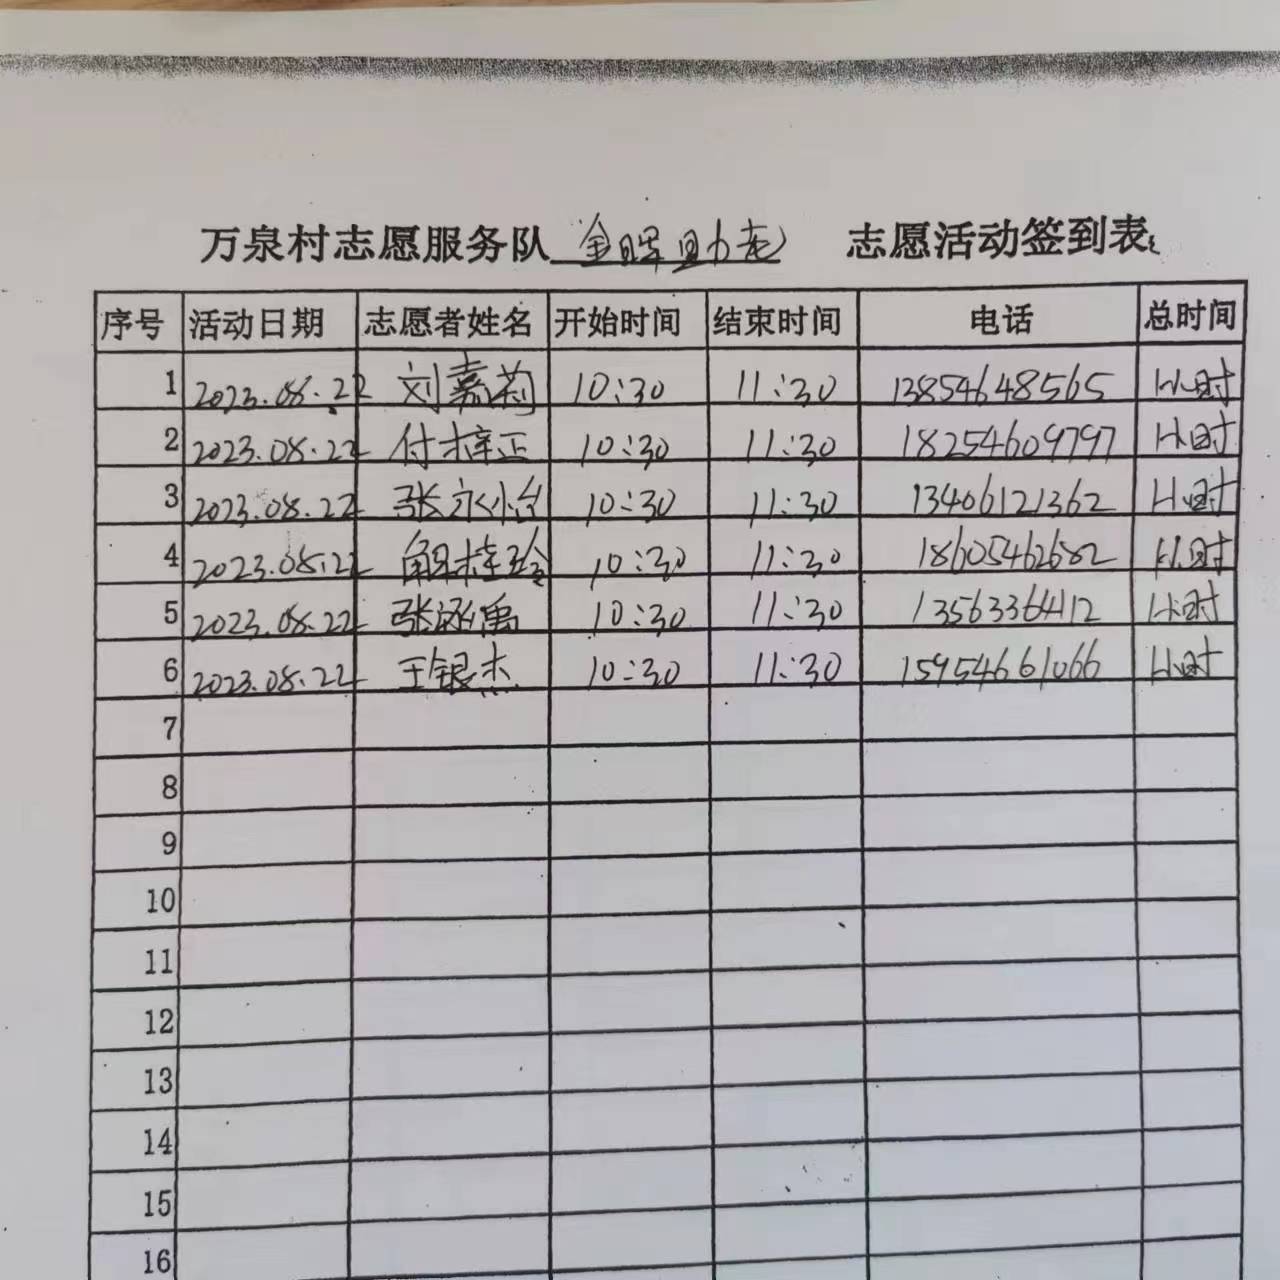 万泉村志愿服务队 金晖助老 志愿活动签到表
序号 活动日期 志愿者姓名 开始时间 结束时间 电话 总时间
1 2023.08.22 刘嘉莉 10:30 11:30 13854648565 1小时
2 2023.08.22 付梓正 10:30 11:30 18254609797 1小时
3 2023.08.22 张永怡 10:30 11:30 13406121362 1小时
4 2023.08.22 解梓玲 10:30 11:30 18605462682 1小时
5 2023.08.22 张禹 10:30 11:30 13563364112 1小时
6 2023.08.22 王银杰 10:30 11:30 15954661066 1小时
7
8
9
10
11
12
13
14
15
16